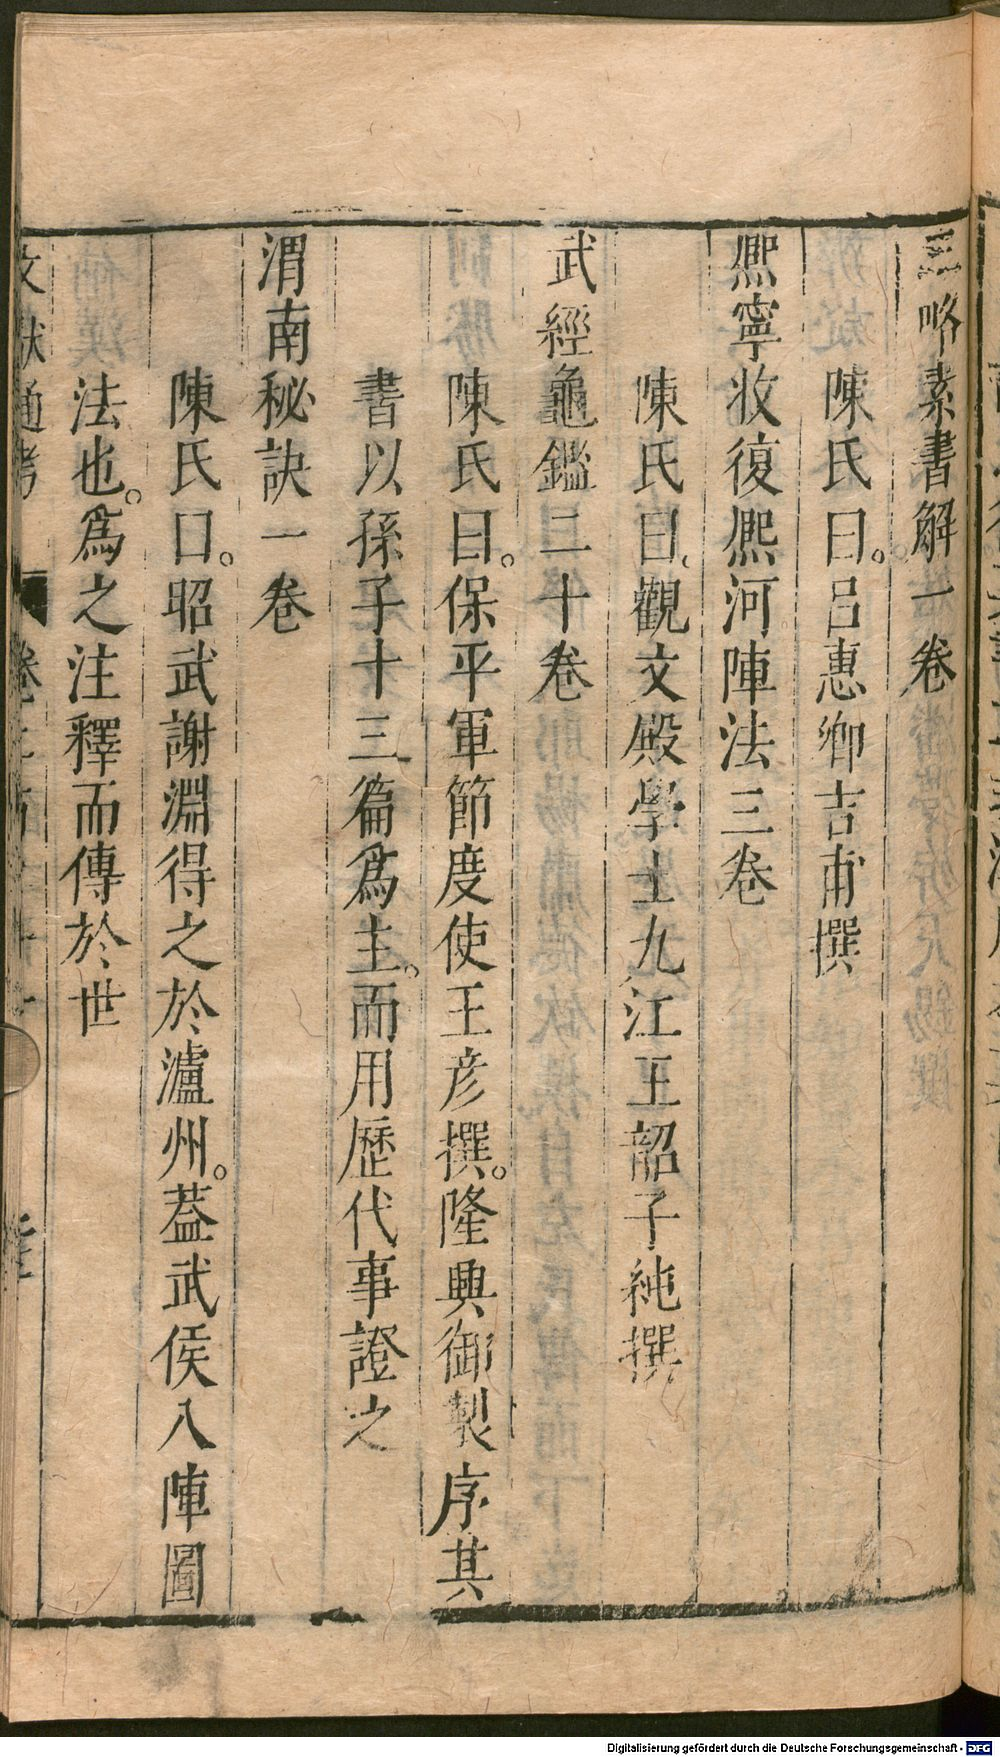 三略素書解一卷
陳氏曰。呂惠卿吉甫撰
熈寧收復熈河陣法三卷
陳氏曰。觀文殿學士九江王韶子純撰
武經龜鑑二十卷
陳氏曰。保平軍節度使王彦撰。隆興御製序其
書以孫子十三篇爲主。而用歷代事證之
渭南秘訣一卷
陳氏口。昭武謝淵得之於瀘州。葢武侯八陣圖
法也。爲之注釋而傳於世
文獻通考
Digitalisierung gefördert durch die Deutsche Forschungsgemeinschaft - DFG